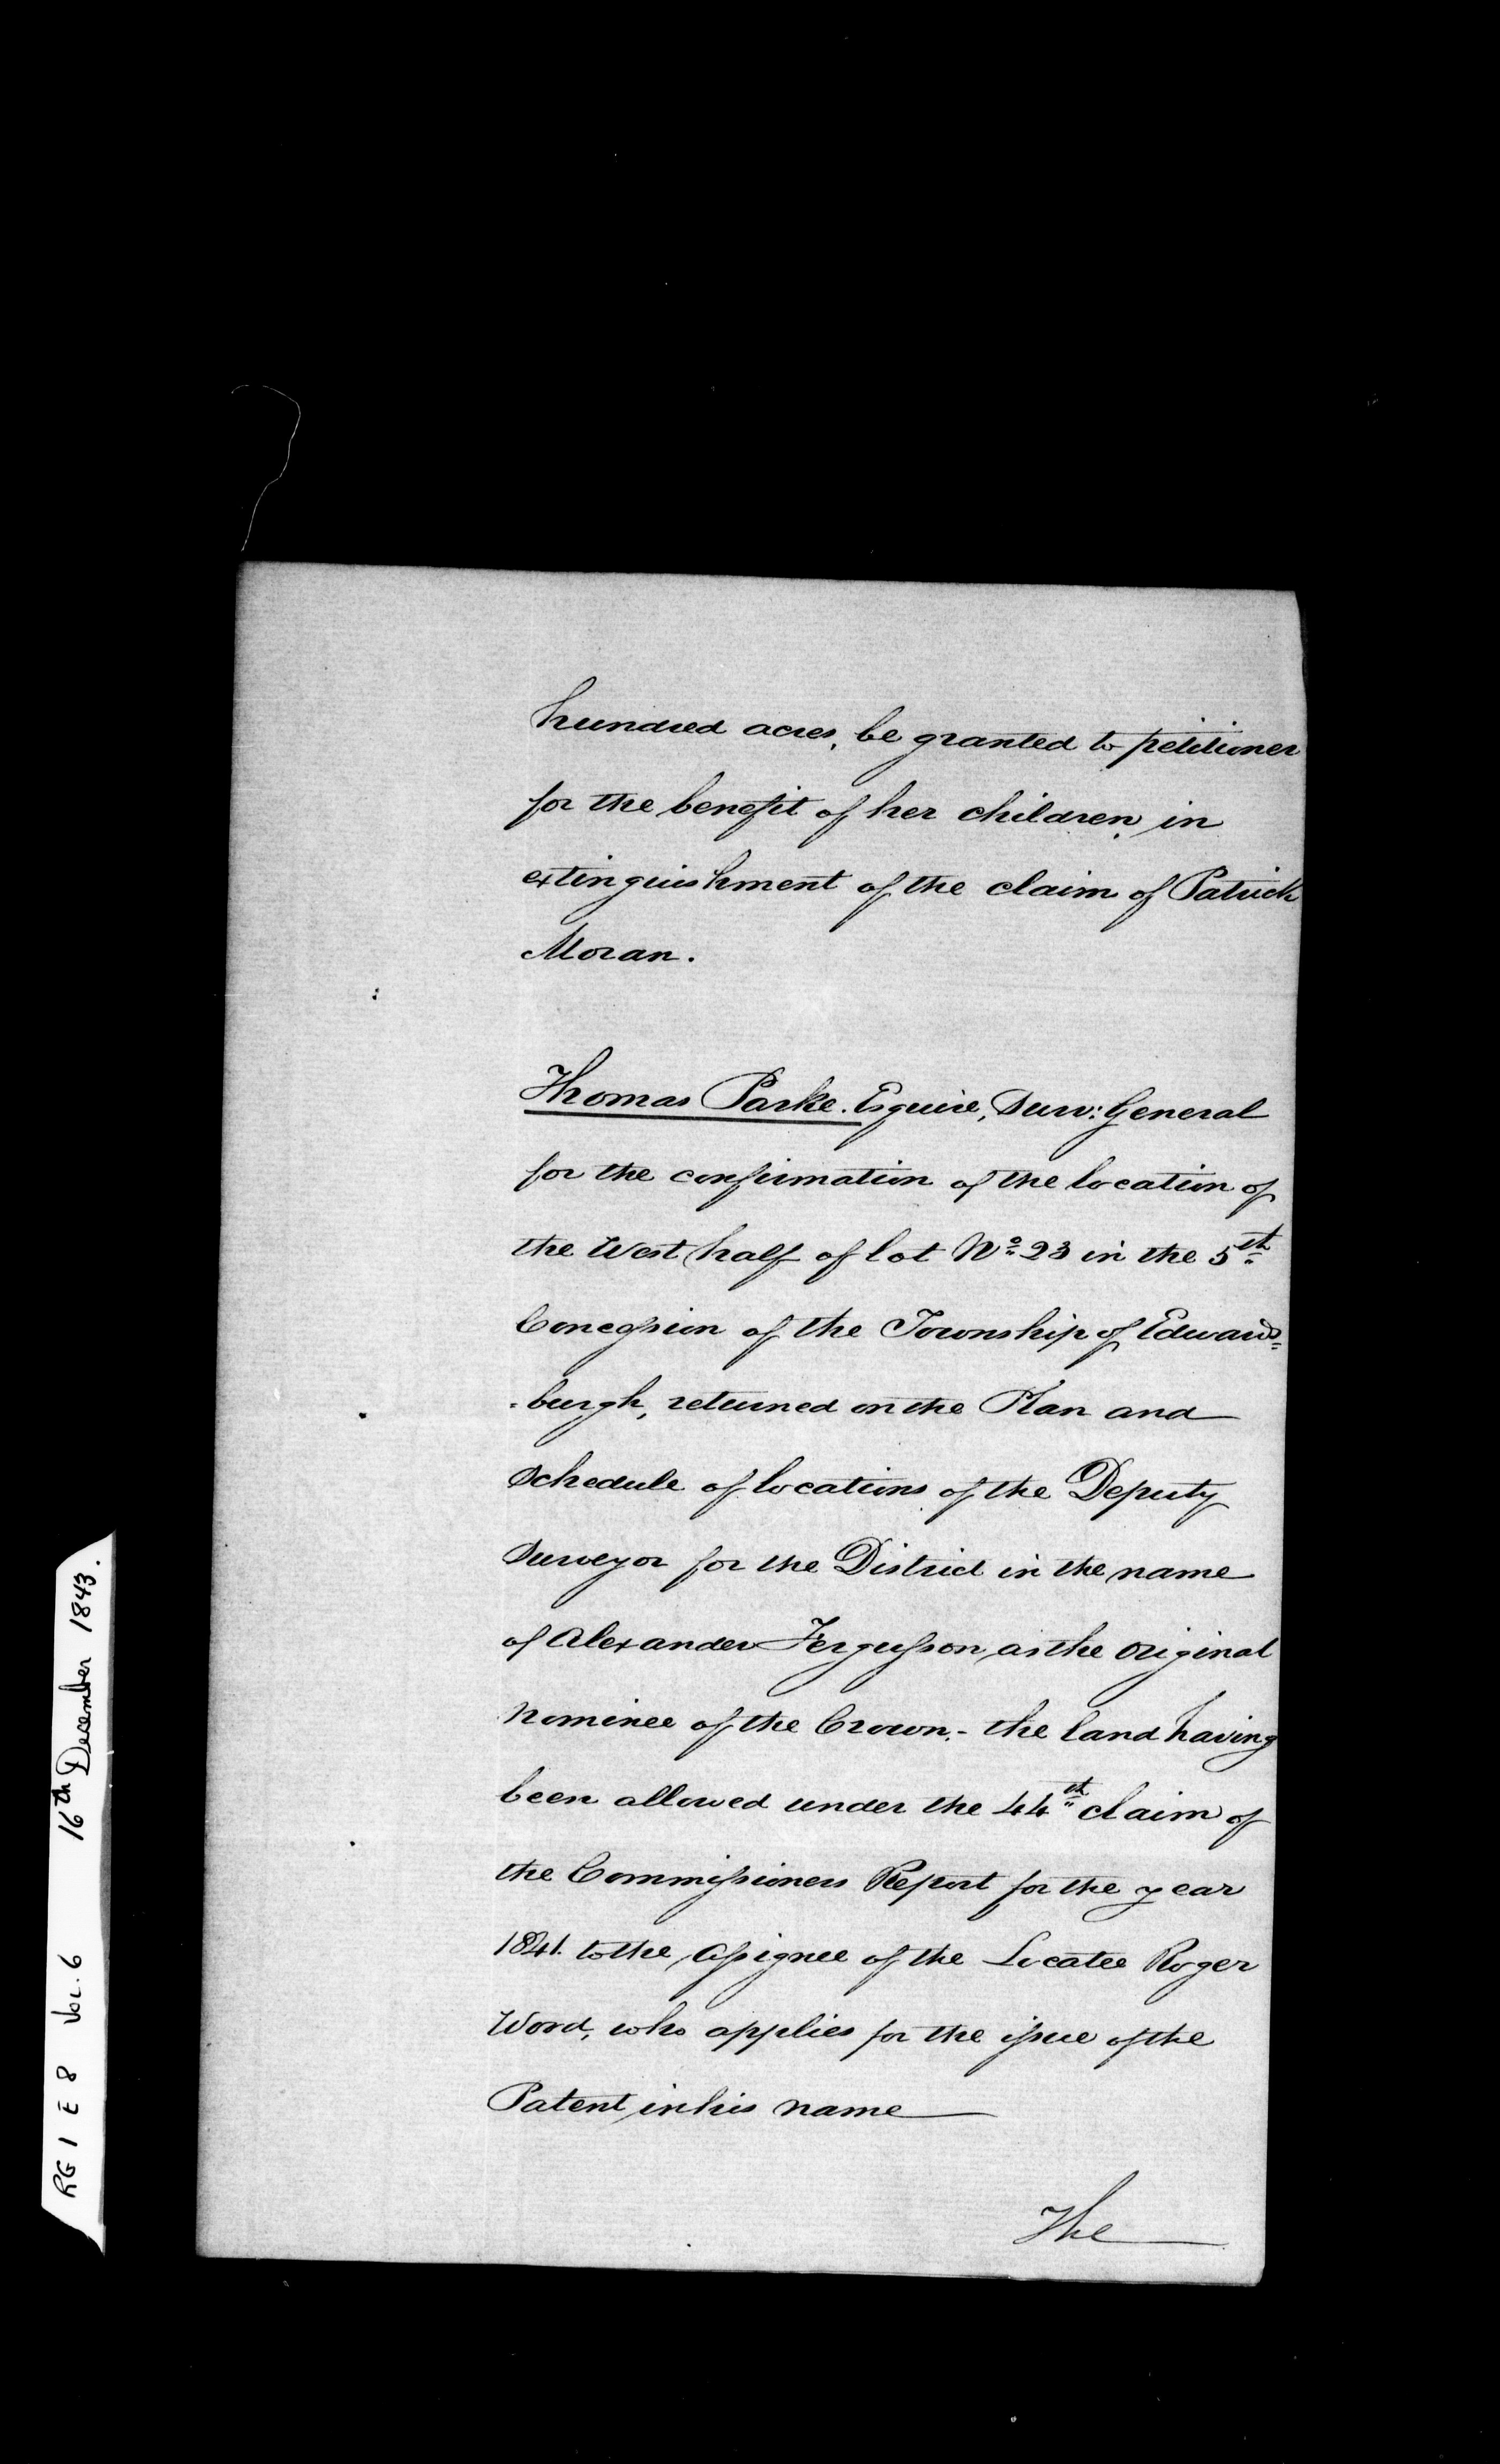 hundred acres, be granted to petitioner
for the benefit of her children, in
extinguishment of the claim of Patrick
Moran.
Thomas Parke. Esquire, Surv: General
for the confirmation of the location of
the West half of lot Nº 23 in the 5th
Concession of the Township of Edwards=
=burgh, returned on the Plan and
Schedule of locations of the Deputy
Surveyor for the District in the name
of Alexander Fergusson, as the original
nominee of the Crown,- the land having
been allowed under the 44th claim of
the Commissioners Report for the year
1841. to the Assignee of the Locatee Roger
Word, who applies for the issue of the
Patent in his name
The
RG 1 E 8 Vol. 6 16th December 1843.